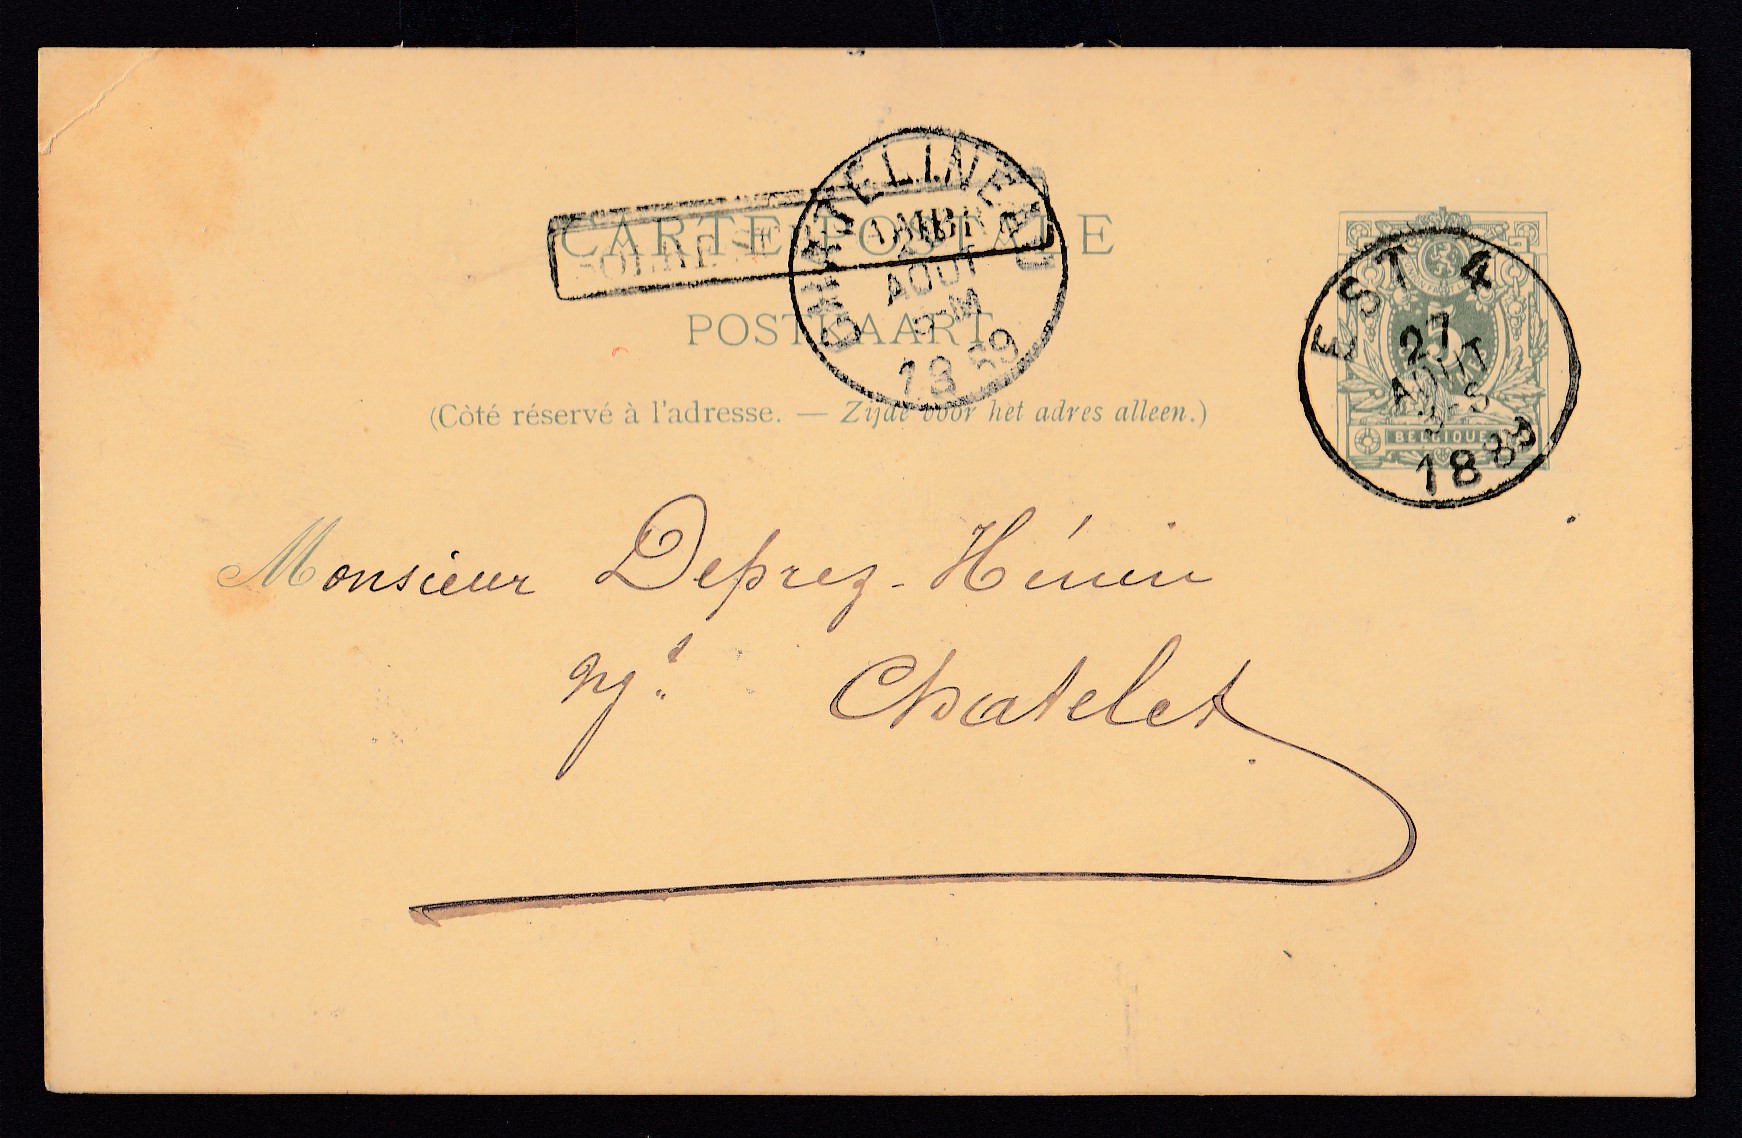 CARTE POSTALE
POSTKAART
(Côté réservé à l'adresse. — Zijde voor het adres alleen.)
CHATELINEAU
AOUT
1889
EST 4
27
AOUT
1889
5
BELGIQUE
Monsieur Deprez-Hénin
Nt. Chatelet